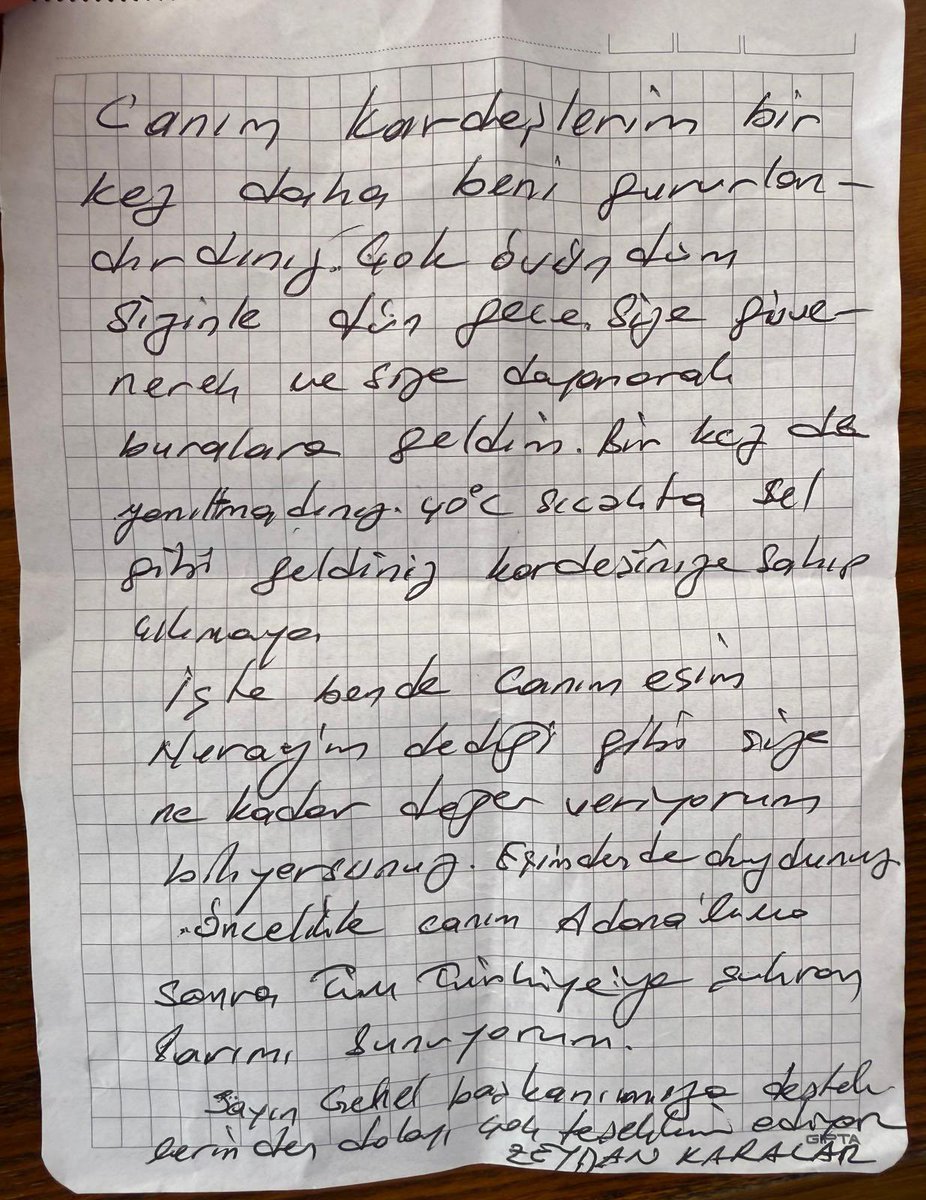 Canım kardeşlerim bir
kez daha beni gururlan-
dırdınız. Çok övündüm
Sizinle dün gece. Size güve-
nerek ve size dayanarak
buralara geldim. Bir kez de
yanıltmadınız. 40°C sıcakta sel
gibi geldiniz kardeşinize sahip
çıkmaya.
İşte bende canım eşim
Nuray'ın dediği gibi size
ne kadar değer veriyorum
biliyorsunuz. Eşimden de duydunuz.
Öncelikle canım Adana'lıma
sonra Tüm Türkiye'ye şükran
larımı sunuyorum.
Sayın Genel başkanımıza destek
lerinden dolayı çok teşekkür ediyor
GIPTA
ZEYDAN KARALAR